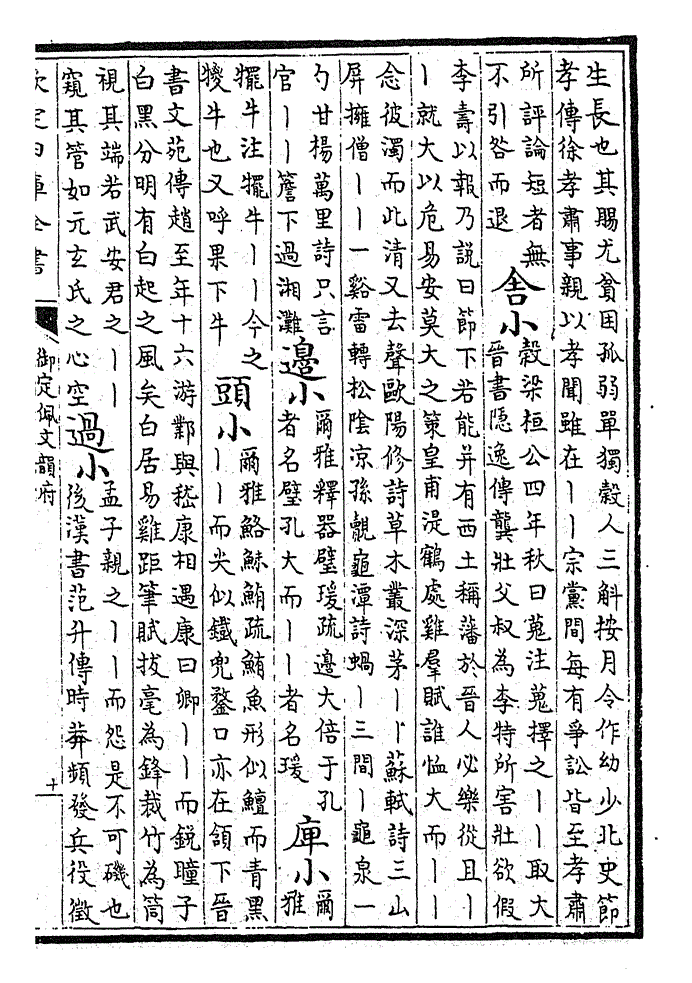 生長也其賜尤貧困孤弱單獨糓人三斛按月令作幼少北史節
孝傳徐孝肅事親以孝聞雖在丨丨宗黨間每有爭訟皆至孝肅
所評論短者無
不引咎而退
舍小
榖梁桓公四年秋曰蒐注蒐擇之丨丨取大
晉書隱逸傳龔壯父叔為李特所害壯欲假
李壽以報乃說曰節下若能并有西土稱藩於晉人必樂從且丨
丨就大以危易安莫大之策皇甫湜鶴處雞羣賦誰恤大而丨丨
念彼濁而此清又去聲歐陽修詩草木叢深茅丨丨蘇軾詩三山
屏擁僧丨丨一谿雷轉松陰凉孫覿龜潭詩蝸丨三間丨龜泉一
勺甘楊萬里詩只言
官丨丨簷下過湘灘
邉小
爾雅釋器璧瑗疏邉大倍于孔
者名璧孔大而丨丨者名瑗
庳小
爾
雅
犤牛注犤牛丨丨今之
㹶牛也又呼果下牛
頭小
爾雅鮥鮛鮪疏鮪魚形似鱣而青黑
丨丨而尖似鐵兜鍪口亦在頷下晉
書文苑傳趙至年十六游鄴與嵇康相遇康曰卿丨丨而銳瞳子
白黑分明有白起之風矣白居易雞距筆賦拔毫為鋒裁竹為筒
視其端若武安君之丨丨
窺其管如元玄氏之心空
過小
孟子親之丨丨而怨是不可磯也
後漢書范升傳時莽頻發兵役徵
欽定四庫全書
御定佩文韻府
十